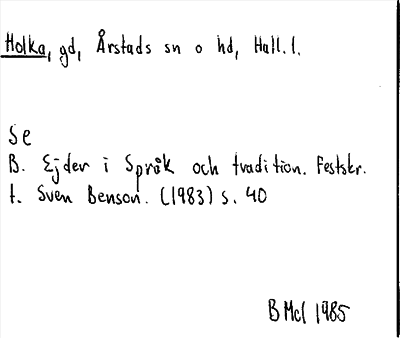 Holka, gd, Årstads sn o hd, Hall. l.
Se
B. Ejder i Språk och tradition. Festskr.
t. Sven Benson. (1983) s. 40
B Mcl 1985